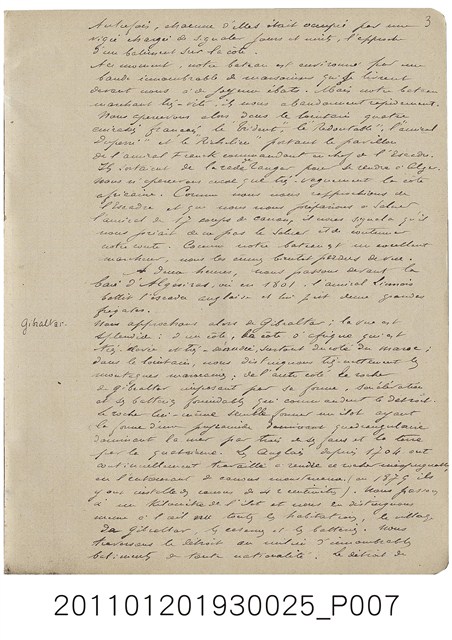 3
Autrefois, chacune d'elles était occupée par un
vigie chargé de signaler jours et nuits, l'approche
d'un bâtiment sur la côte.
En ce moment, notre bateau est environné par une
bande innombrable de marsouins qui se livrent
devant nous à de joyeux ébats. Mais notre bateau
marchant très-vite, ils nous abandonnent rapidement.
Nous apercevons alors dans le lointain quatre
cuirassés français, le "Trident", le Redoutable, l'amiral
Duperré et le Richelieu portant le pavillon
de l'amiral Franck commandant en chef de l'Escadre.
Ils venaient de la rade Tanger pour se rendre à Alger.
Nous n'apercevons ainsi que très-vaguement la côte
africaine. Comme nous nous rapprochions de
l'Escadre et que nous nous préparions à saluer
l'amiral de 17 coups de canon, il nous signala qu'il
nous priait de ne pas le saluer et de continuer
notre route. Comme notre bateau est un excellent
marcheur, nous les eûmes bientôt perdus de vue.
A deux heures, nous passons devant la
baie d'Algésiras, où en 1801 l'amiral Linois
battit l'escadre anglaise et lui prit deux grandes
frégates.
Gibraltar.
Nous approchons alors de Gibraltar; la vue est
splendide: d'un côté, la côte d'Afrique qui est
très-élevée et très-escarpée, surtout du côté du Maroc;
dans le lointain, nous distinguons très-nettement les
montagnes marocaines; de l'autre côté le rocher
de Gibraltar imposant par sa forme, son élévation
et ses batteries formidables qui commandent le détroit.
Le rocher lui-même semble former un îlot ayant
la forme d'une pyramide quadrangulaire
dominant la mer par trois de ses faces et la terre
par la quatrième. Les Anglais depuis 1704 ont
continuellement travaillé à rendre ce rocher inexpugnable
en l'entourant de canons monstrueux (en 1879 ils
y ont installé des canons de centimètres). Nous passons
à un kilomètre de l'îlot et nous distinguons
même à l'œil nu toutes les habitations, le village
de Gibraltar, les casernes, les batteries. Nous
traversons le détroit au milieu d'innombrables
bâtiments de toute nationalité. Le détroit de
201101201930025_P007